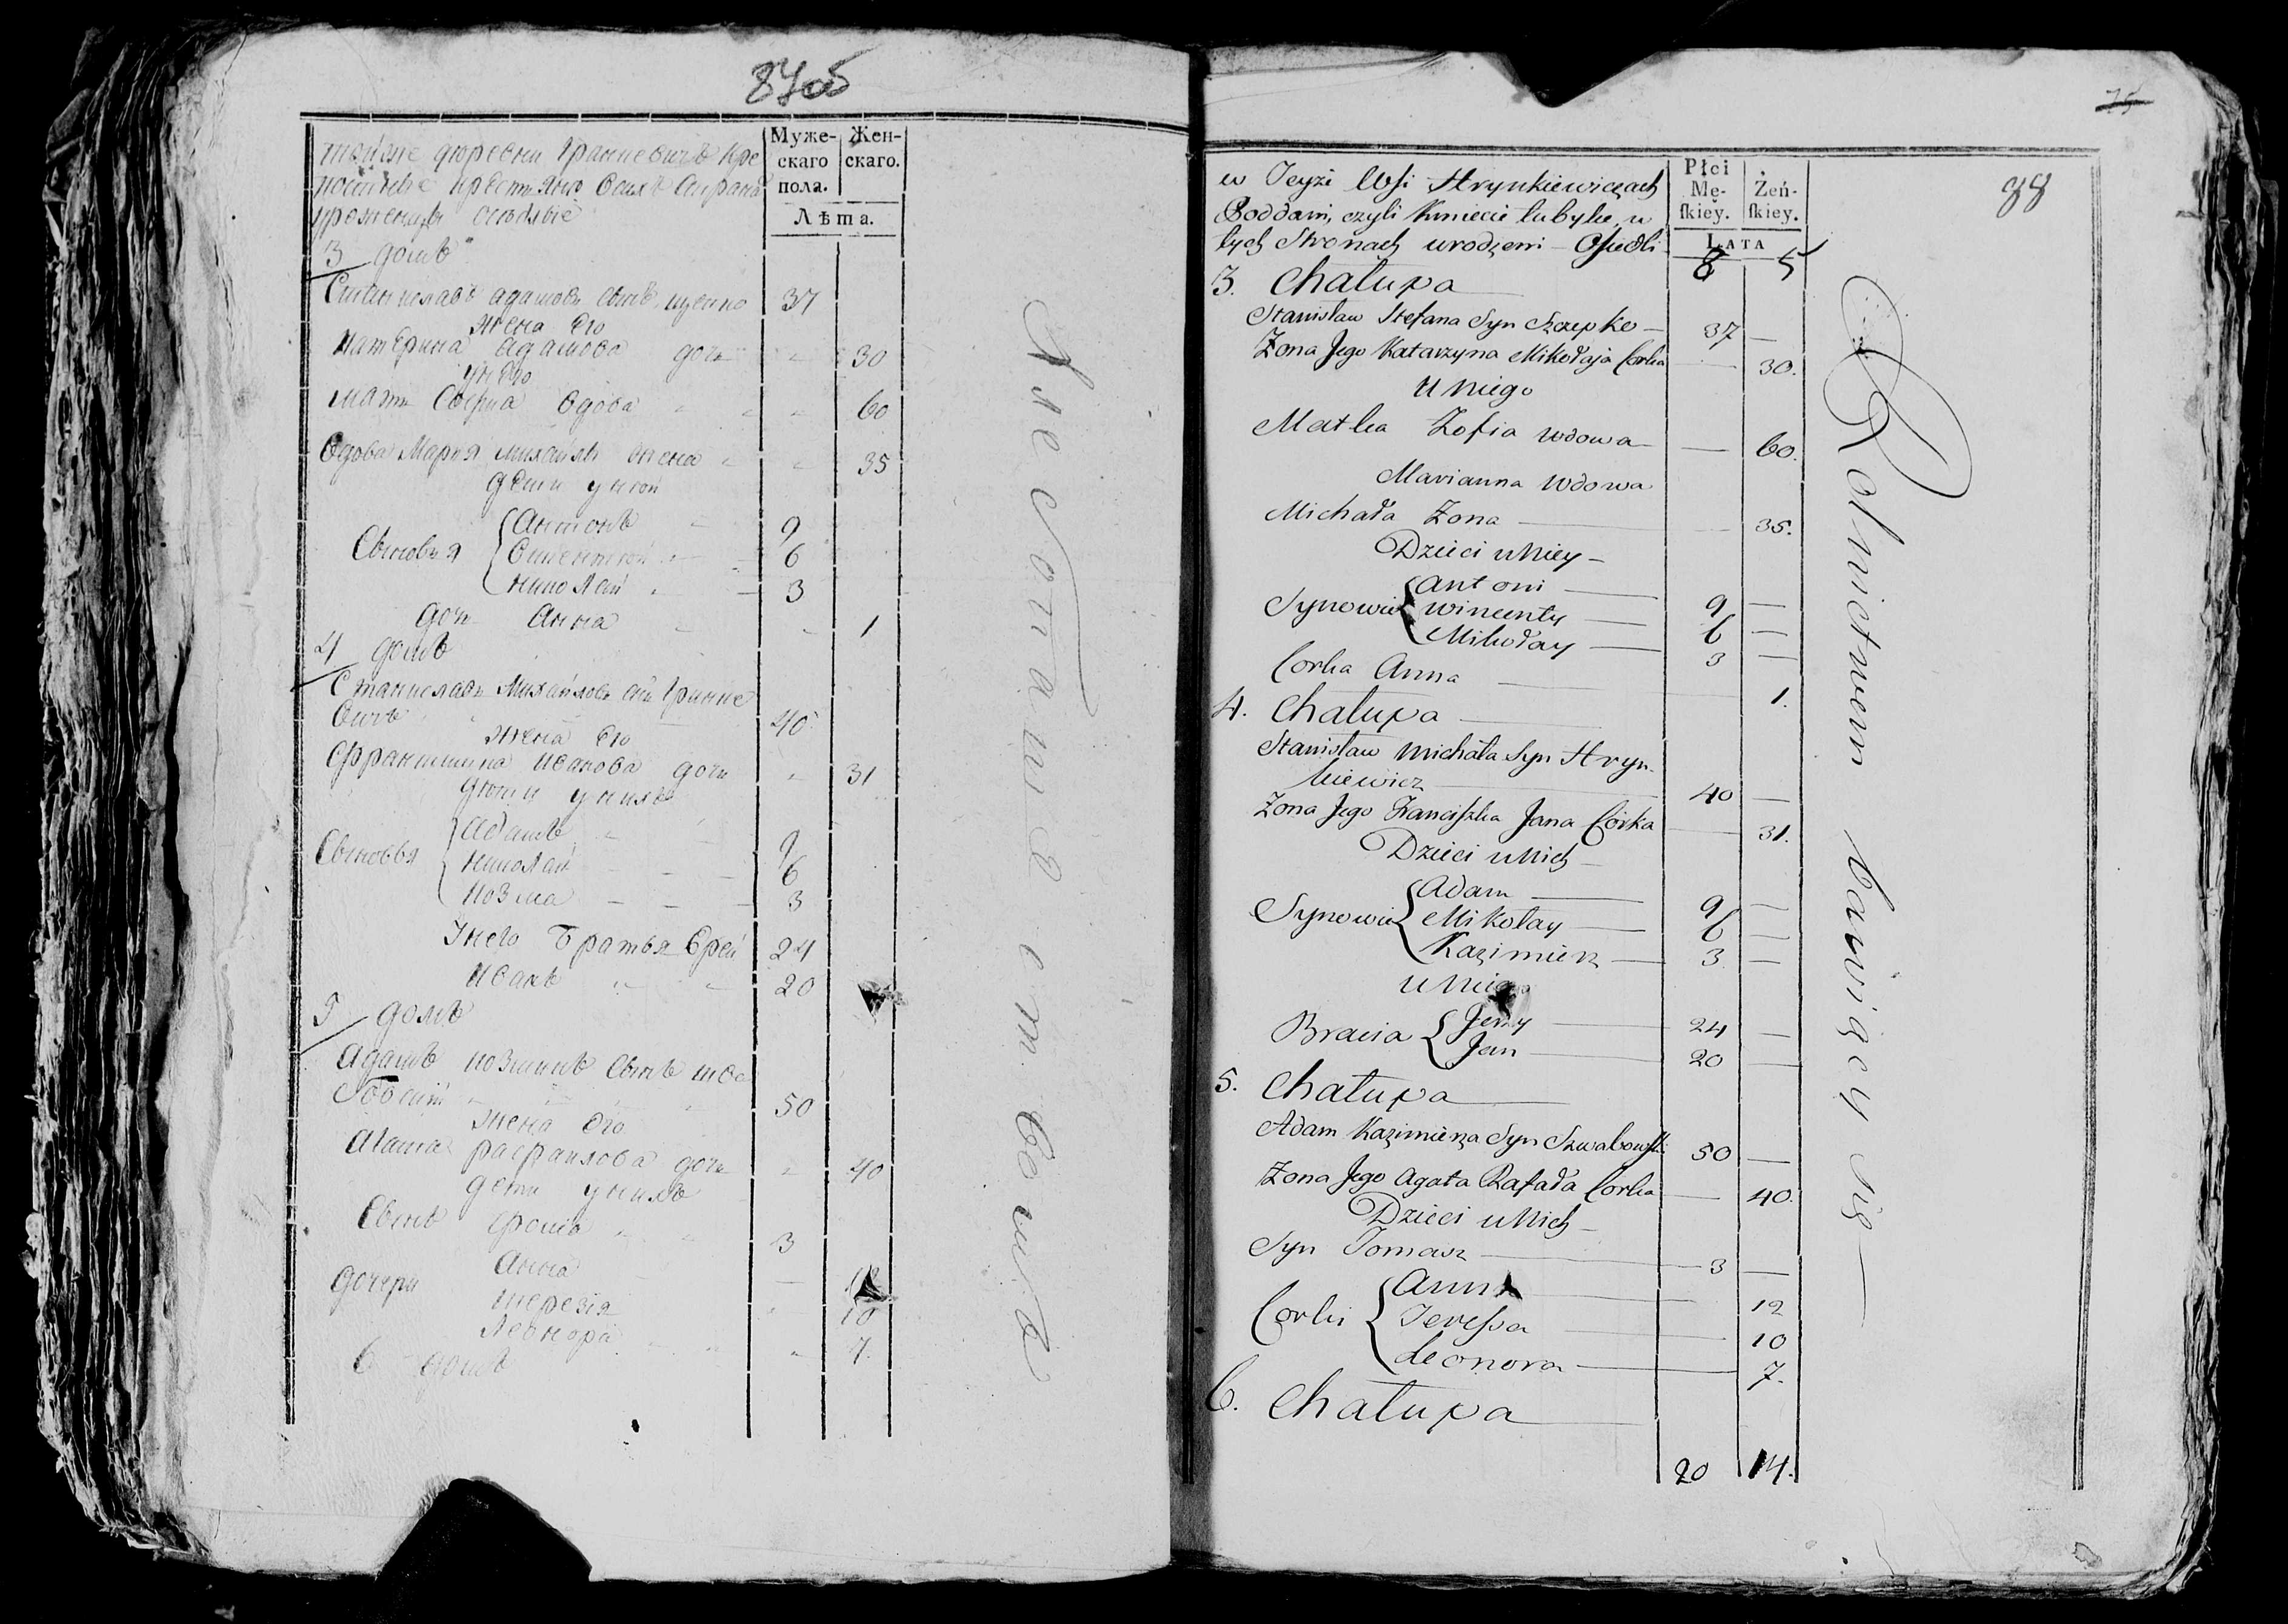 87об
Муже-
скаго
пола.
Жен-
скаго.
Лѣта.
3 домъ
Станиславъ Адамовъ сынъ 37
жена его
Катерина Адамова дочь 30
у него
мать София вдова 60
вдова Мария Михайла жена 35
дети у ней
Сыновья
Антонъ 9
Викентий 6
Николай 3
дочь Анна 1
4 домъ
Станиславъ Михайловъ сынъ Гринке
вичъ 40
жена его
Франтишка Иванова дочь 31
дети у нихъ
Сыновья
Адамъ 9
Николай 6
Козма 3
У него братья Юрей 24
Иванъ 20
5 домъ
Адамъ Козминъ сынъ 50
жена его
Агата Рафаилова дочь 40
дети у нихъ
Сынъ Фома 3
дочери
Анна 12
Терезія 10
Леонора 7.
6 домъ
75
88
w Teyże Wsi Hrynkiewiczach
Poddani, czyli Kmiecie tubylce, w
tych Stronach urodzeni Osiedli
Płci
Mę-
ſkiey.
Żeń-
ſkiey.
LATA
8 5
3. Chałupa
Stanisław Stefana Syn Szczepko 37 —
Zona Jego Katarzyna Mikołaja Corka — 30.
u Niego
Matka Zofia wdowa — 60.
Marianna wdowa
Michała Zona — 35.
Dzieci u Niey
Synowie
Antoni 9 —
Wincenty 6 —
Mikołay 3 —
Corka Anna — 1.
4. Chałupa
Stanisław Michała Syn Hryn-
kiewicz 40 —
Zona Jego Franciszka Jana Córka — 31.
Dzieci u Nich
Synowie
Adam 9 —
Mikołay 6 —
Kazimierz 3 —
u Niego
Bracia
Jerzy 24 —
Jan 20 —
5. Chałupa
Adam Kazimierza Syn Szwabowski 50 —
Zona Jego Agata Rafała Corka — 40.
Dzieci u Nich
Syn Tomasz 3 —
Corki
Anna 12
Teressa 10
Leonora 7.
6. Chałupa
20 14.
Rolnictwem bawiący się